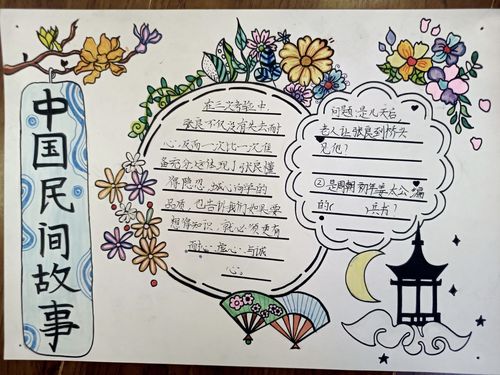 中国民间故事
在三次考验中,
张良不仅没有失去耐
心,反而一次比一次准
备充分,这体现了张良懂
得隐忍、诚心治学的
品质,也告诉我们如果要
想得知识,就必须更有
耐心,虚心,与诚
心。
问题:①是几天后
老人让张良到桥头
见他?
②是周朝初年姜太公编
的( )兵书?